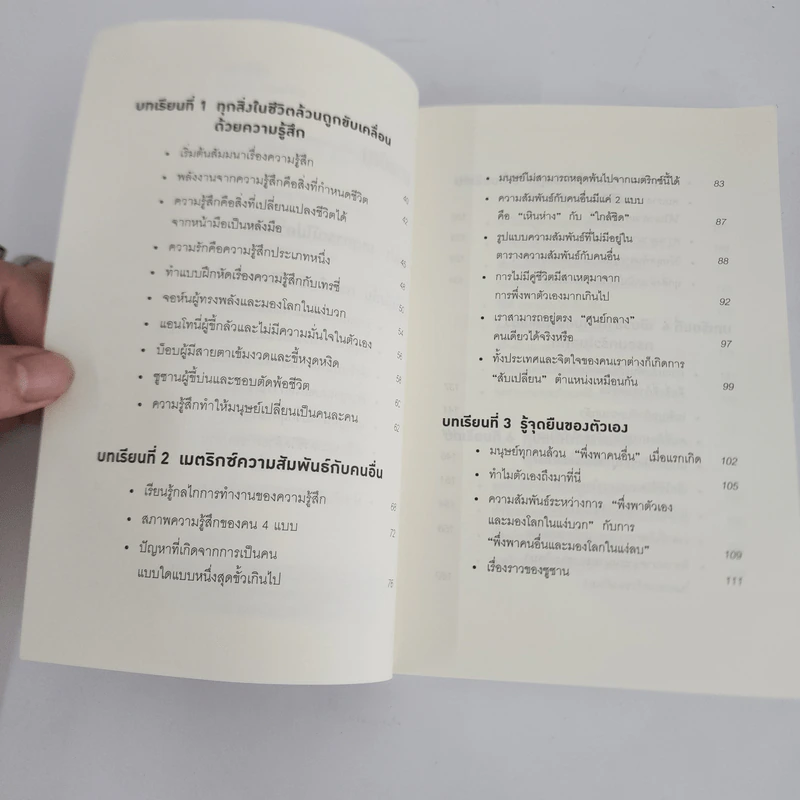 บทเรียนที่ 1 ทุกสิ่งในชีวิตล้วนถูกขับเคลื่อน
ด้วยความรู้สึก
• เริ่มต้นสัมมนาเรื่องความรู้สึก
• พลังงานจากความรู้สึกคือสิ่งที่กำหนดชีวิต 40
• ความรู้สึกคือสิ่งที่เปลี่ยนแปลงชีวิตได้ 42
จากหน้ามือเป็นหลังมือ
• ความรักคือความรู้สึกประเภทหนึ่ง 43
• ทำแบบฝึกหัดเรื่องความรู้สึกกับเทรซี่ 48
• จอห์นผู้ทรงพลังและมองโลกในแง่บวก 50
• แอนโทนี่ผู้ขี้กลัวและไม่มีความมั่นใจในตัวเอง 54
• บ็อบผู้มีสายตาเข้มงวดและขี้หงุดหงิด 56
• ซูซานผู้ขี้บ่นและชอบตัดพ้อชีวิต 58
• ความรู้สึกทำให้มนุษย์เปลี่ยนเป็นคนละคน 60
62
บทเรียนที่ 2 เมตริกซ์ความสัมพันธ์กับคนอื่น
• เรียนรู้กลไกการทำงานของความรู้สึก 68
• สภาพความรู้สึกของคน 4 แบบ 72
• ปัญหาที่เกิดจากการเป็นคน
แบบใดแบบหนึ่งสุดขั้วเกินไป 76
• มนุษย์ไม่สามารถหลุดพ้นไปจากเมตริกซ์นี้ได้ 83
• ความสัมพันธ์กับคนอื่นมีแค่ 2 แบบ
คือ “เหินห่าง” กับ “ใกล้ชิด” 87
• รูปแบบความสัมพันธ์ที่ไม่มีอยู่ใน
ตารางความสัมพันธ์กับคนอื่น 88
• การไม่มีคู่ชีวิตมีสาเหตุมาจาก
การพึ่งพาตัวเองมากเกินไป 92
• เราสามารถอยู่ตรง “ศูนย์กลาง”
คนเดียวได้จริงหรือ 97
• ทั้งประเทศและจิตใจของคนเราต่างก็เกิดการ
“สับเปลี่ยน” ตำแหน่งเหมือนกัน 99
บทเรียนที่ 3 รู้จุดยืนของตัวเอง
• มนุษย์ทุกคนล้วน “พึ่งพาคนอื่น” เมื่อแรกเกิด 102
• ทำไมตัวเองถึงมาที่นี่ 105
• ความสัมพันธ์ระหว่างการ “พึ่งพาตัวเอง
และมองโลกในแง่บวก” กับการ
“พึ่งพาคนอื่นและมองโลกในแง่ลบ” 109
• เรื่องราวของซูซาน 111